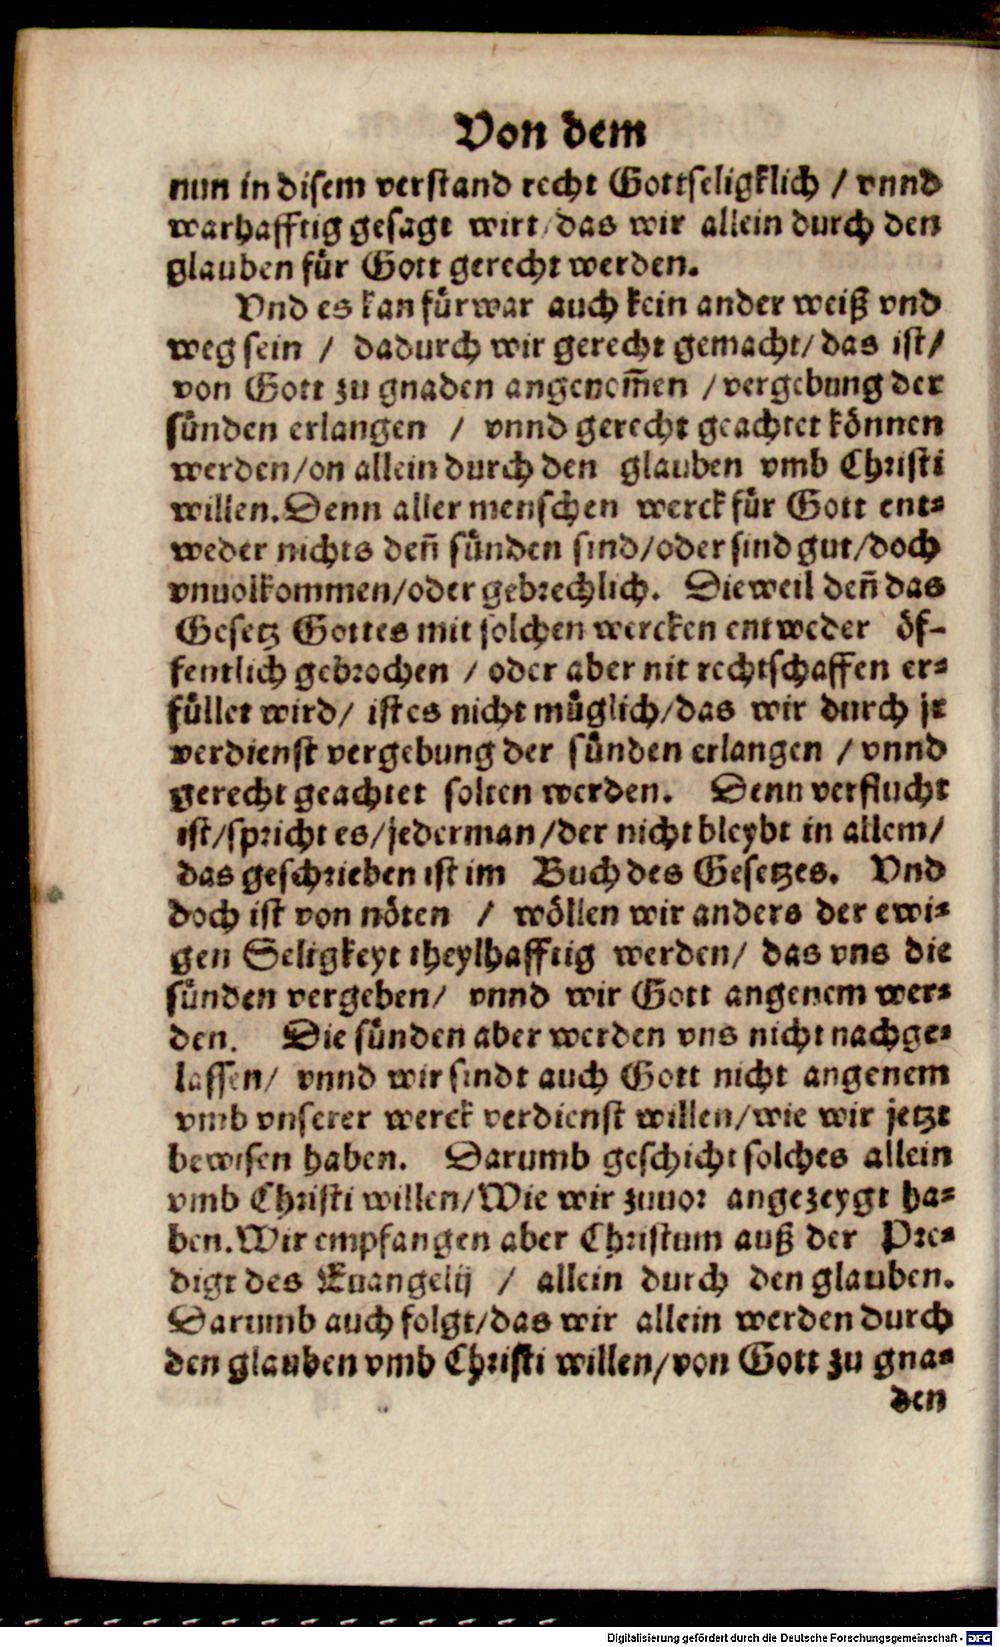 Von dem
nun in disem verstand recht Gottseligklich / vnnd
warhafftig gesagt wirt / das wir allein durch den
glauben für Gott gerecht werden.
Vnd es kan fürwar auch kein ander weiß vnd
weg sein / dadurch wir gerecht gemacht / das ist /
von Gott zu gnaden angenom̃en / vergebung der
sünden erlangen / vnnd gerecht geachtet können
werden / on allein durch den glauben vmb Christi
willen. Denn aller menschen werck für Gott ent-
weder nichts deñ sünden sind / oder sind gut / doch
vnuolkommen / oder gebrechlich. Dieweil deñ das
Gesetz Gottes mit solchen wercken entweder öf-
fentlich gebrochen / oder aber nit rechtschaffen er-
füllet wird / ist es nicht müglich / das wir durch jr
verdienst vergebung der sünden erlangen / vnnd
gerecht geachtet solten werden. Denn verflucht
ist / spricht es / jederman / der nicht bleybt in allem /
das geschrieben ist im Buch des Gesetzes. Vnd
doch ist von nöten / wöllen wir anders der ewi-
gen Seligkeyt theylhafftig werden / das vns die
sünden vergeben / vnnd wir Gott angenem wer-
den. Die sünden aber werden vns nicht nachge-
lassen / vnnd wir sindt auch Gott nicht angenem
vmb vnserer werck verdienst willen / wie wir jetzt
bewisen haben. Darumb geschicht solches allein
vmb Christi willen / Wie wir zuuor angezeygt ha-
ben. Wir empfangen aber Christum auß der Pre-
digt des Euangelij / allein durch den glauben.
Darumb auch folgt / das wir allein werden durch
den glauben vmb Christi willen / von Gott zu gna-
den
Digitalisierung gefördert durch die Deutsche Forschungsgemeinschaft - DFG